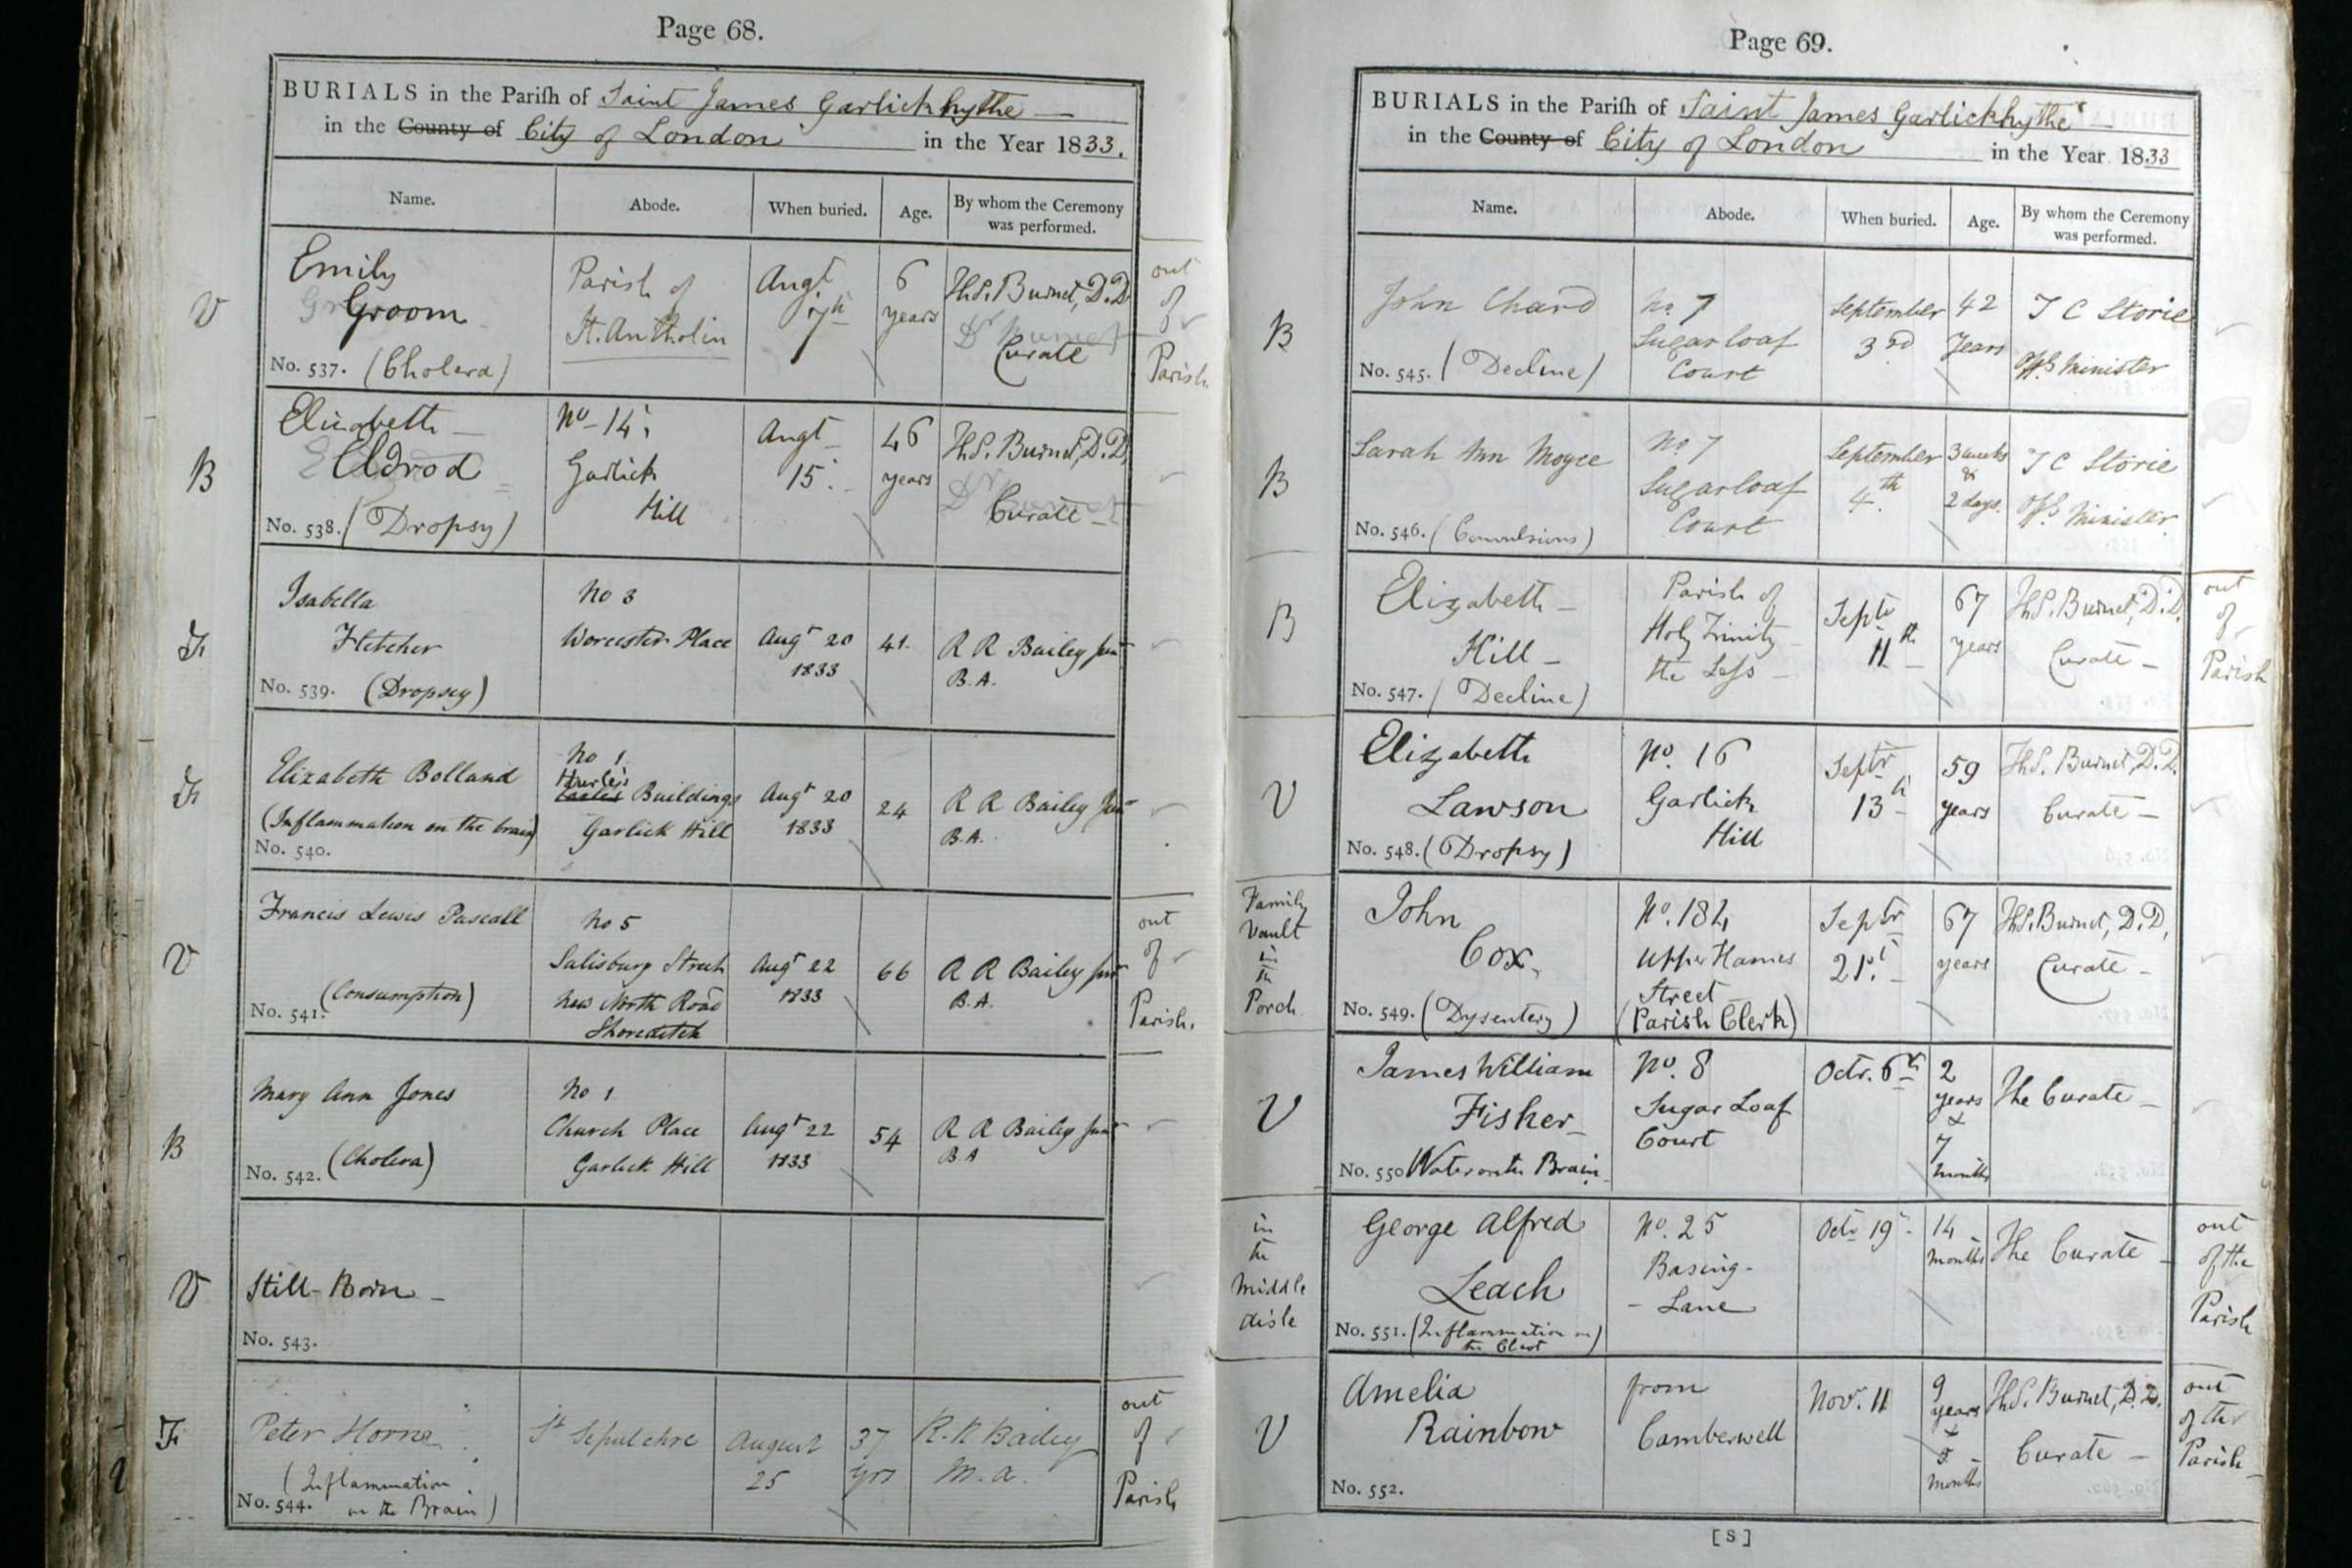 Page 68.
BURIALS in the Parish of Saint James Garlickhythe
in the County of City of London in the Year 1833.
Name. Abode. When buried. Age. By whom the Ceremony was performed.
V
Emily
Groom
No. 537. (Cholera)
Parish of
St. Antholin
Augt
7th
6
years
Th.S. Burnet, D.D.
Curate
out
of
Parish
B
Elizabeth
Eldrod
No. 538. (Dropsy)
No 14
Garlick
Hill
Augt
15
46
years
Th.S. Burnet, D.D.
Curate
F
Isabella
Fletcher
No. 539. (Dropsey)
No 3
Worcester Place
Augt 20
1833
41
R R Bailey Junr
B.A.
F
Elizabeth Bolland
(Inflammation on the brain)
No. 540.
No 1
Buildings
Garlick Hill
Augt 20
1833
24
R R Bailey Junr
B.A.
V
Francis Lewis Pascall
(Consumption)
No. 541.
No 5
Salisbury Street
New North Road
Shoreditch
Augt 22
1833
66
R R Bailey Junr
B.A.
out
of
Parish.
B
Mary Ann Jones
(Cholera)
No. 542.
No 1
Church Place
Garlick Hill
Augt 22
1833
54
R R Bailey Junr
B A
V
Still-Born
No. 543.
F
Peter Horne
(Inflammation
on the Brain)
No. 544.
St Sepulchre
August
25
37
yrs
R. R Bailey
M.A.
out
of
Parish
Page 69.
BURIALS in the Parish of Saint James Garlickhythe
in the County of City of London in the Year 1833
Name. Abode. When buried. Age. By whom the Ceremony was performed.
B
John Chard
No. 545. (Decline)
No. 7
Sugarloaf
Court
September
3rd
42
Years
J C Storie
Offg Minister
B
Sarah Ann Moyce
No. 546. (Convulsions)
No 7
Sugarloaf
Court
September
4th
3 weeks
&
2 days.
J C Storie
Offg Minister
B
Elizabeth
Hill
No. 547. (Decline)
Parish of
Holy Trinity
the Less
Septr
11th
67
years
Th.S. Burnet, D.D.
Curate
out
of
Parish
V
Elizabeth
Lawson
No. 548. (Dropsy)
No. 16
Garlick
Hill
Septr
13th
59
years
Th.S. Burnet, D.D.
Curate
Family
Vault
in
the
Porch
John
Cox
No. 549. (Dysentery)
No. 184
Upper Thames
Street
(Parish Clerk)
Septr
21st
67
years
Th.S. Burnet, D.D,
Curate
V
James William
Fisher
No. 550 Water on the Brain
No. 8
Sugar Loaf
Court
Octr. 6th
2
years
&
7
months
The Curate
in
the
Middle
Aisle
George Alfred
Leach
No. 551. (Inflammation on
the Chest)
No. 25
Basing-
Lane
Octr 19
14
months
The Curate
out
of the
Parish
V
Amelia
Rainbow
No. 552.
from
Camberwell
Novr. 11
9
years
&
5
months
Th.S. Burnet, D.D.
Curate
out
of the
Parish
[S]